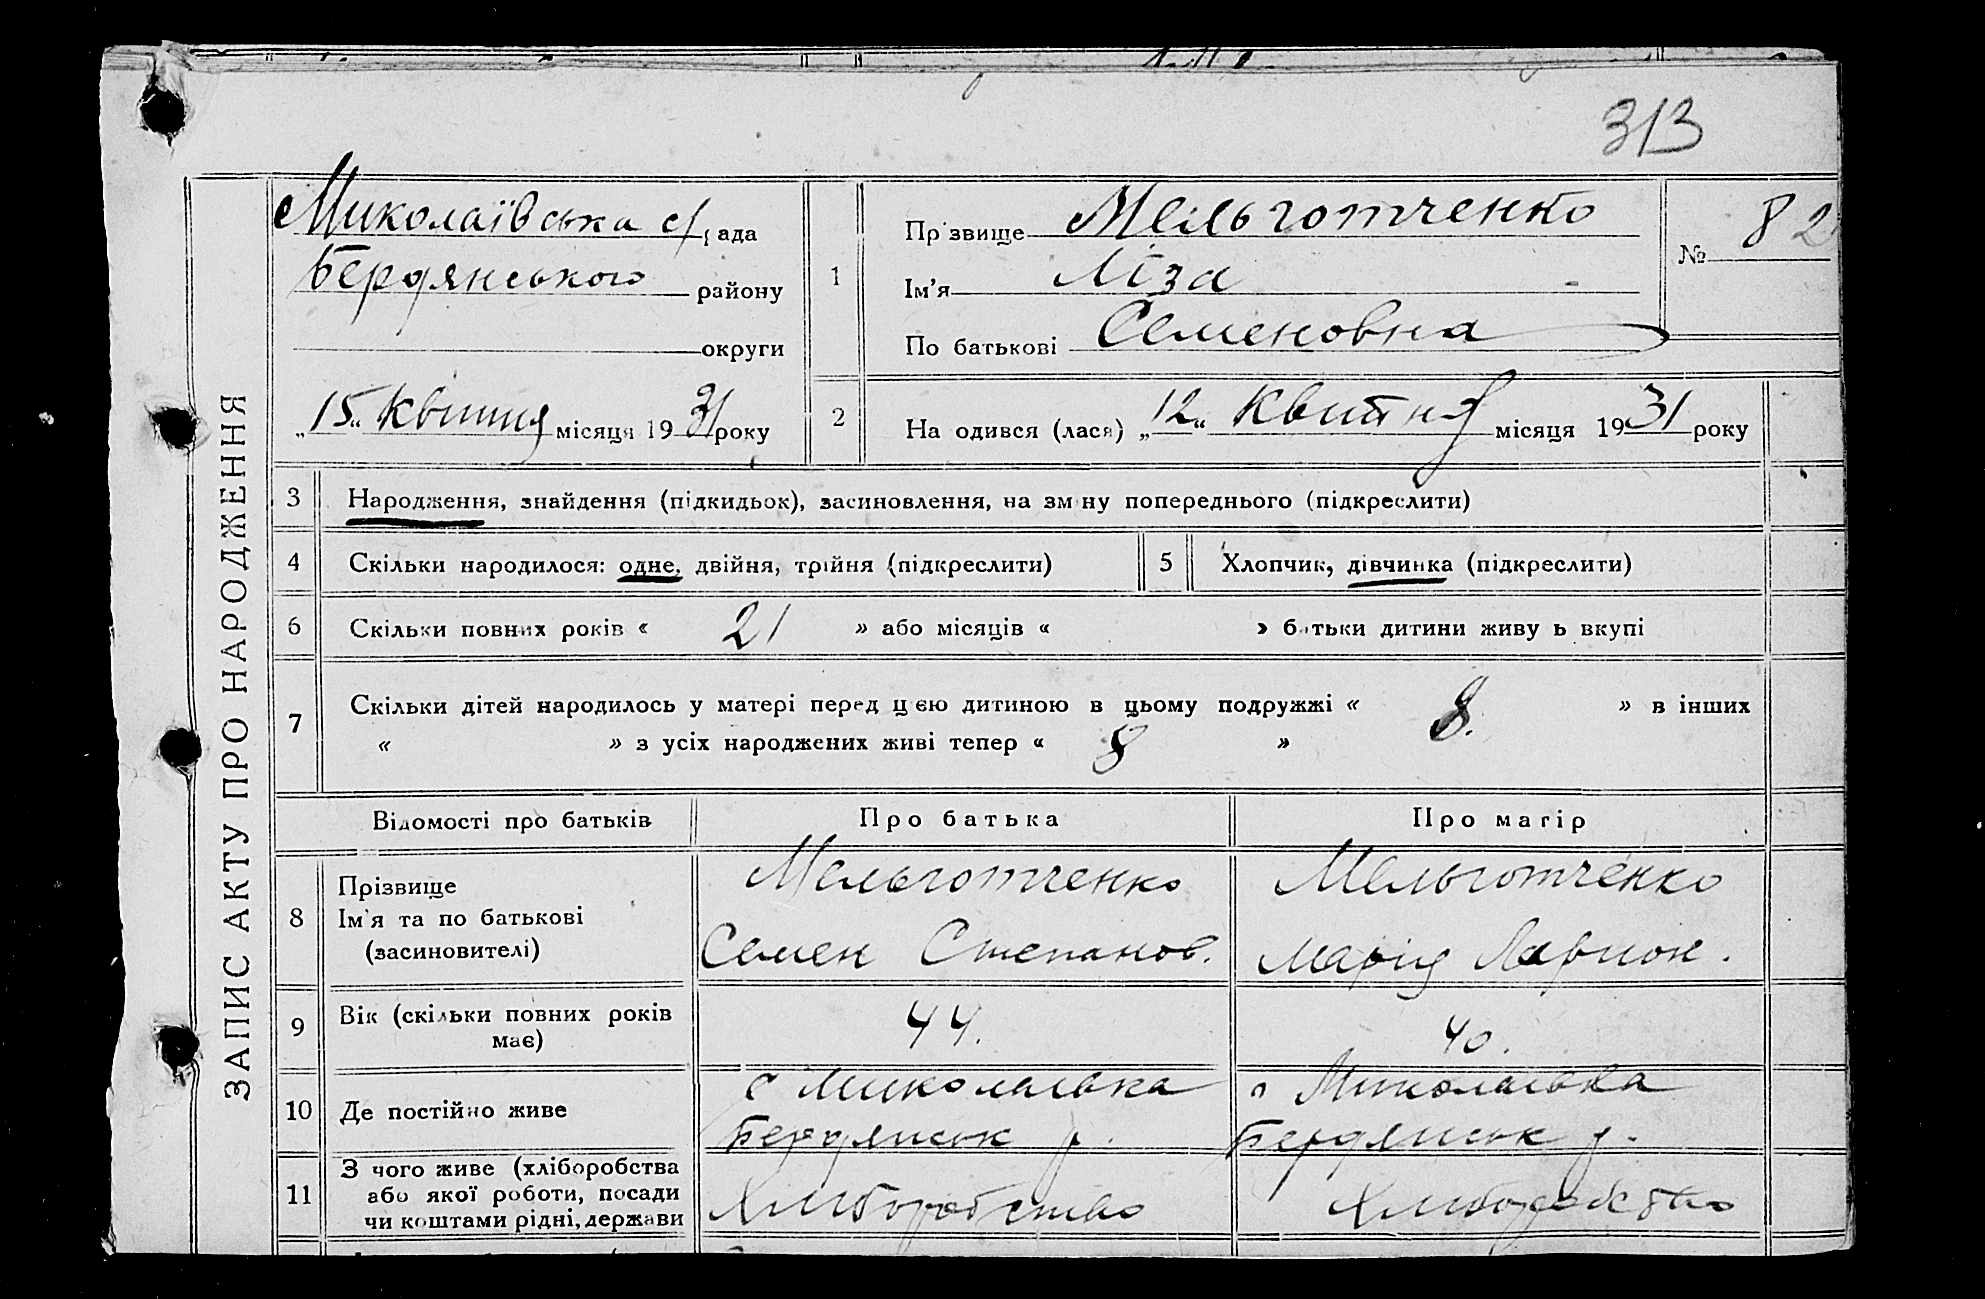 313
ЗАПИС АКТУ ПРО НАРОДЖЕННЯ
Миколаївська с/рада
Бердянського району
округи
„15“ Квітня місяця 1931 року
1
Прізвище Мельготченко
Ім’я Ліза
По батькові Семеновна
№ 82
2
На одився (лася) „12“ Квитня місяця 1931 року
3 Народження, знайдення (підкидьок), засиновлення, на зміну попереднього (підкреслити)
4 Скільки народилося: одне, двійня, трійня (підкреслити) 5 Хлопчик, дівчинка (підкреслити)
6 Скільки повних років « 21 » або місяців « » батьки дитини живу ь вкупі
7 Скільки дітей народилось у матері перед цією дитиною в цьому подружжі « 8. » в інших
« » з усіх народжених живі тепер « 8 »
Відомості про батьків Про батька Про матір
8 Прізвище
Ім’я та по батькові
(засиновителі)
Мельготченко
Семен Степанов.
Мельготченко
Марія Ларион.
9 Вік (скільки повних років
має)
44.
40.
10 Де постійно живе
с Миколаївка
Бердянськ р.
с Миколаївка
Бердянськ р.
11 З чого живе (хліборобства
або якої роботи, посади
чи коштами рідні, держави
Хліборобство
Хліборобство